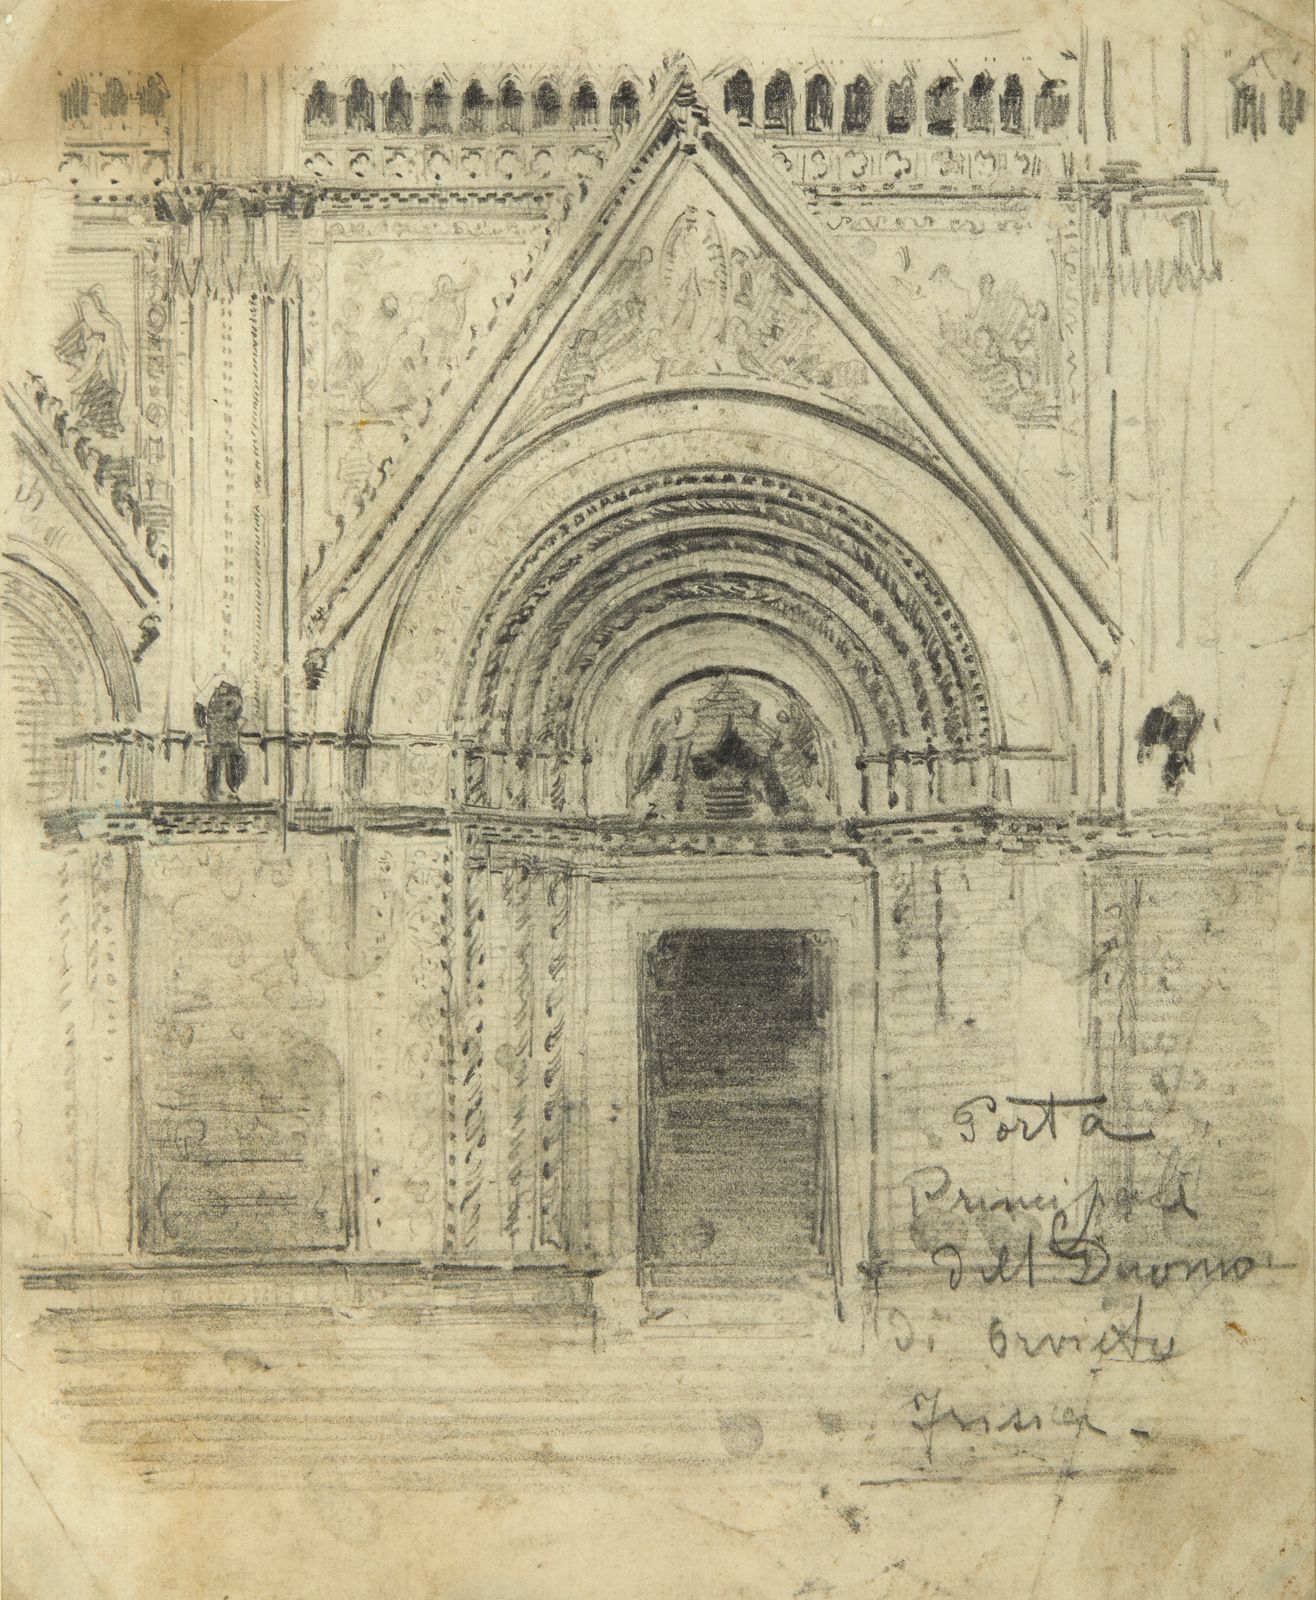 Porta
Principale
dell Duomo
di Orvieto